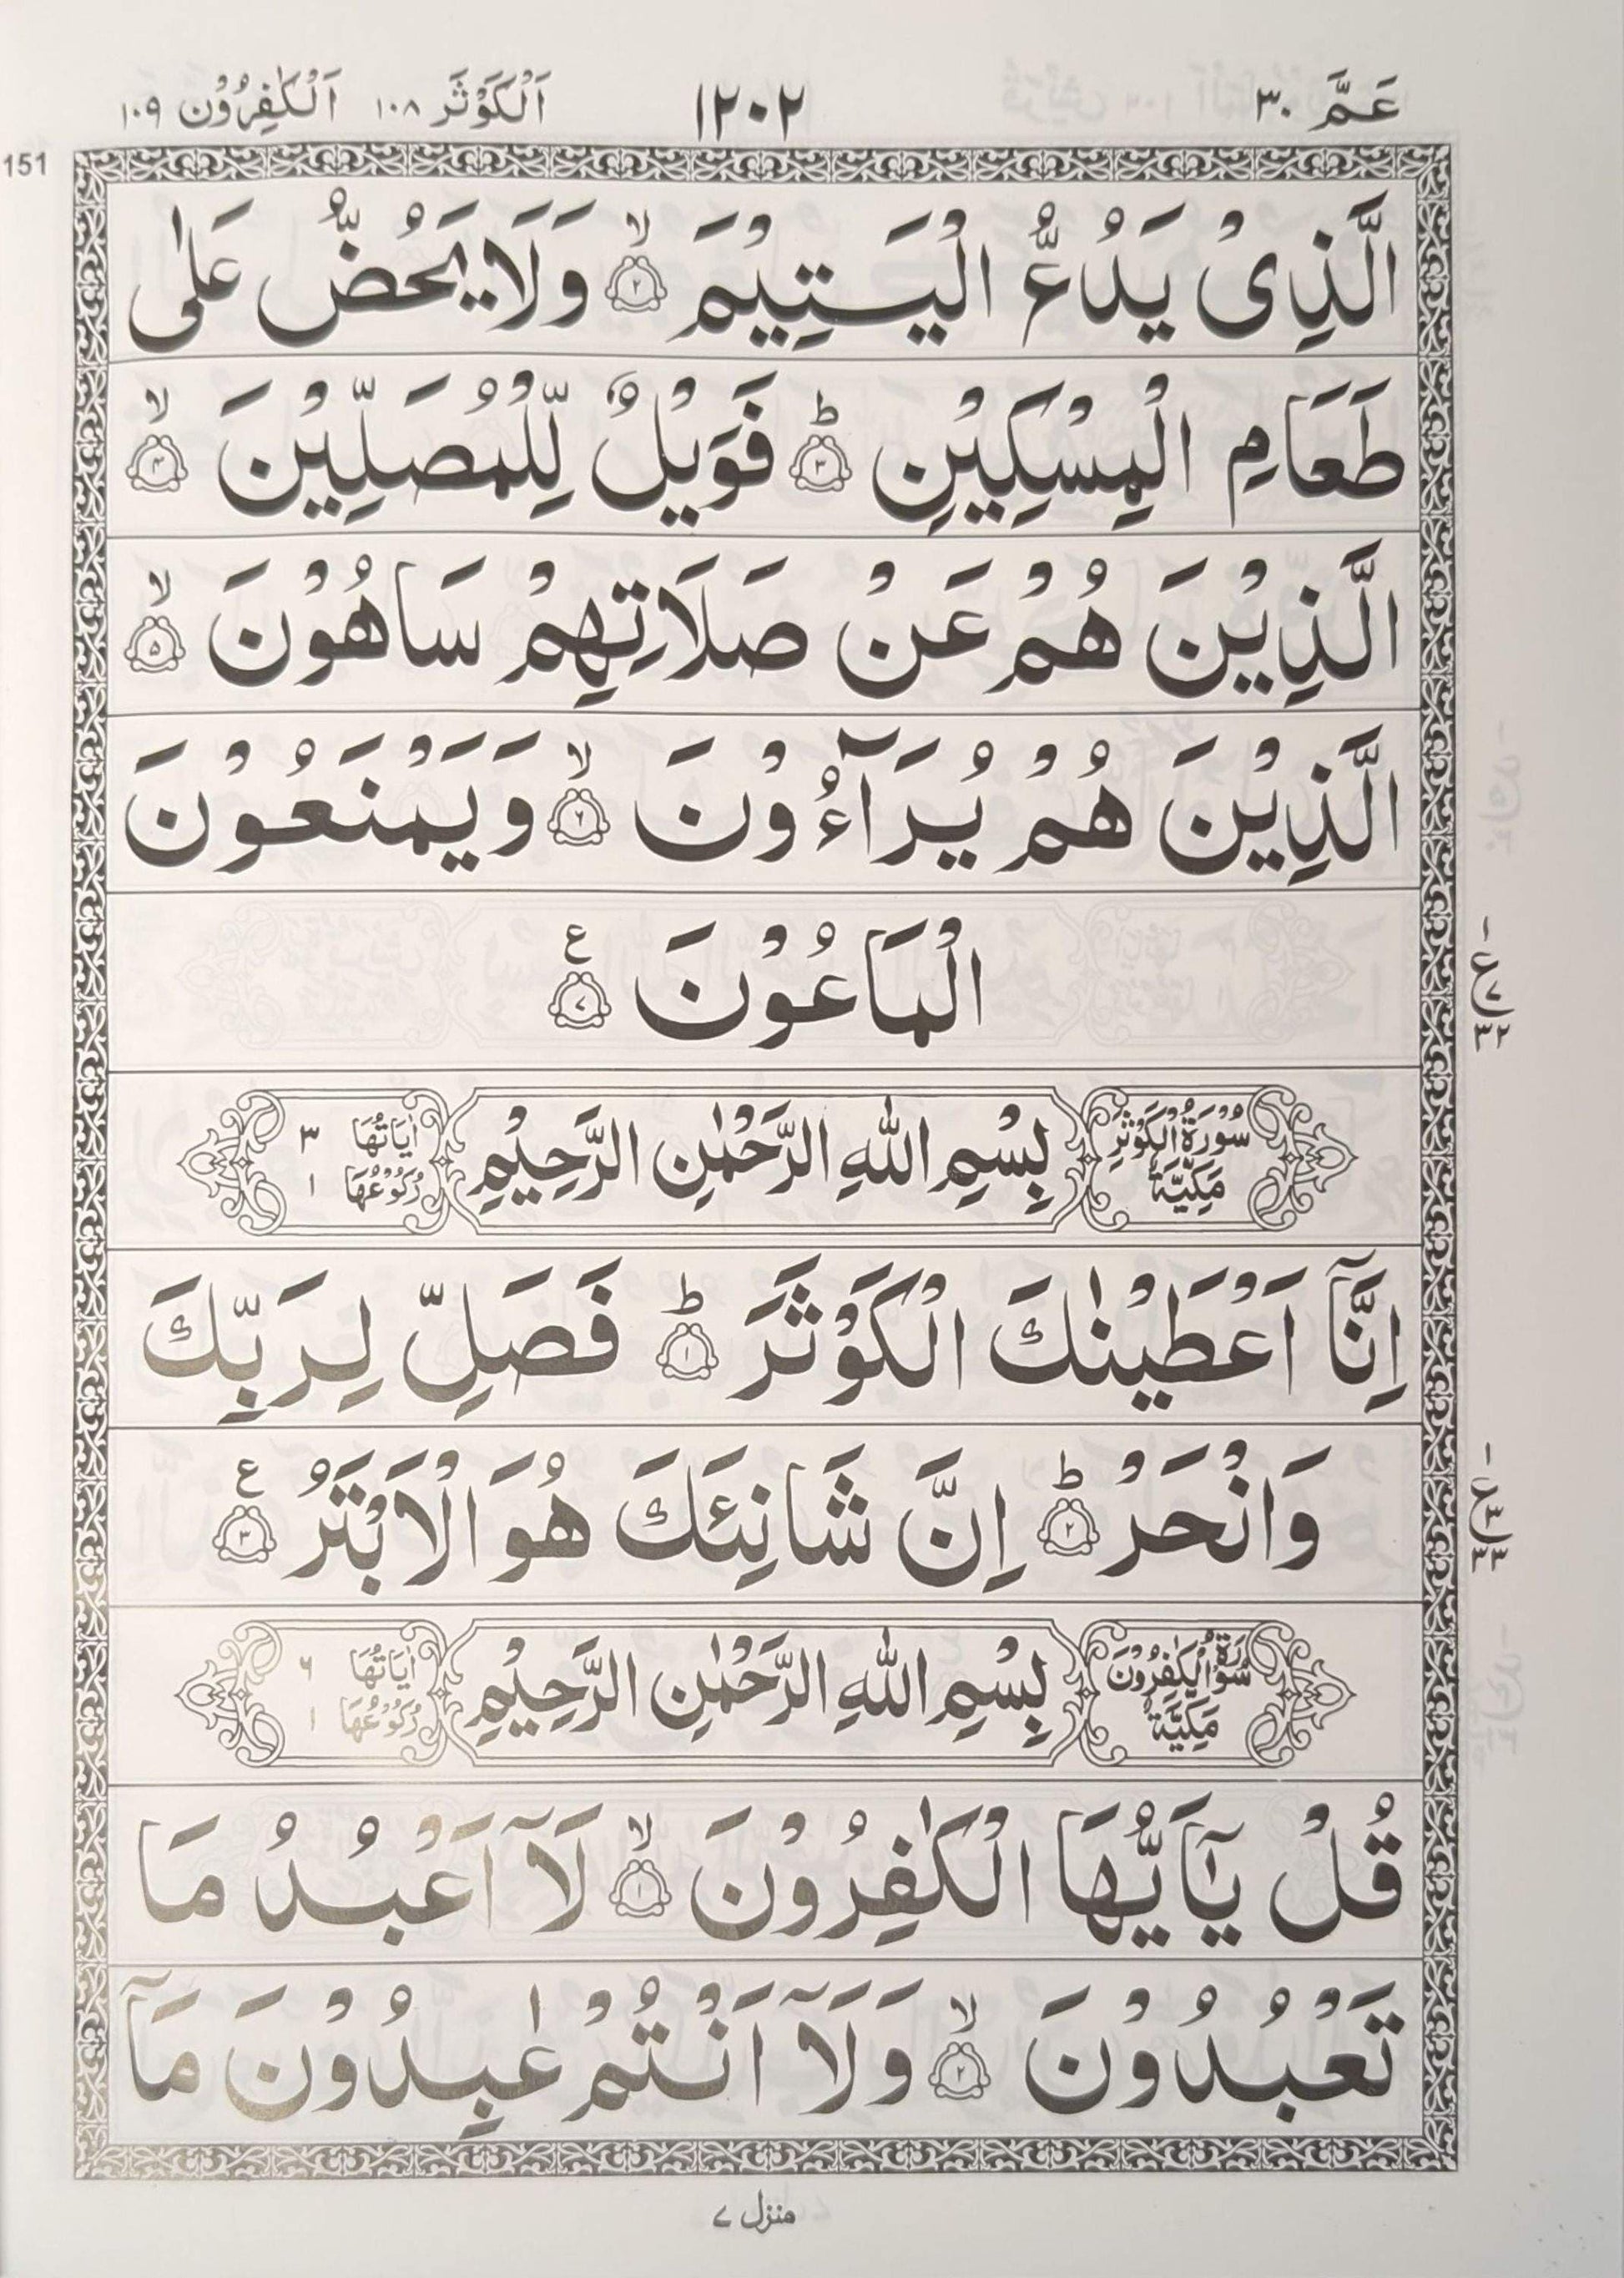 عَمَّ ٣٠ ١٢٠٢ اَلْكَوْثَر ١٠٨ اَلْكٰفِرُوْن ١٠٩
151
الَّذِىْ يَدُعُّ الْيَتِيْمَ ۙ‏﴿۲﴾ وَلَا يَحُضُّ عَلٰى
طَعَامِ الْمِسْكِيْنِ ؕ‏﴿۳﴾ فَوَيْلٌ لِّلْمُصَلِّيْنَ ۙ‏﴿۴﴾
الَّذِيْنَ هُمْ عَنْ صَلَاتِهِمْ سَاهُوْنَ ۙ‏﴿۵﴾
الَّذِيْنَ هُمْ يُرَآءُوْنَ ۙ‏﴿۶﴾ وَيَمْنَعُوْنَ
الْمَاعُوْنَ ‏﴿۷﴾ ع
سُوْرَةُ الْكَوْثَرِ مَكِّيَّةٌ بِسْمِ اللّٰهِ الرَّحْمٰنِ الرَّحِيْمِ اٰيَاتُهَا ٣ رُكُوْعُهَا ١
اِنَّآ اَعْطَيْنٰكَ الْكَوْثَرَ ؕ‏﴿۱﴾ فَصَلِّ لِرَبِّكَ
وَانْحَرْ ؕ‏﴿۲﴾ اِنَّ شَانِئَكَ هُوَ الْاَبْتَرُ ‏﴿۳﴾ ع
سُوْرَةُ الْكٰفِرُوْنَ مَكِّيَّةٌ بِسْمِ اللّٰهِ الرَّحْمٰنِ الرَّحِيْمِ اٰيَاتُهَا ٦ رُكُوْعُهَا ١
قُلْ يٰٓاَيُّهَا الْكٰفِرُوْنَ ۙ‏﴿۱﴾ لَاۤ اَعْبُدُ مَا
تَعْبُدُوْنَ ۙ‏﴿۲﴾ وَلَاۤ اَنْتُمْ عٰبِدُوْنَ مَاۤ
منزل ٧